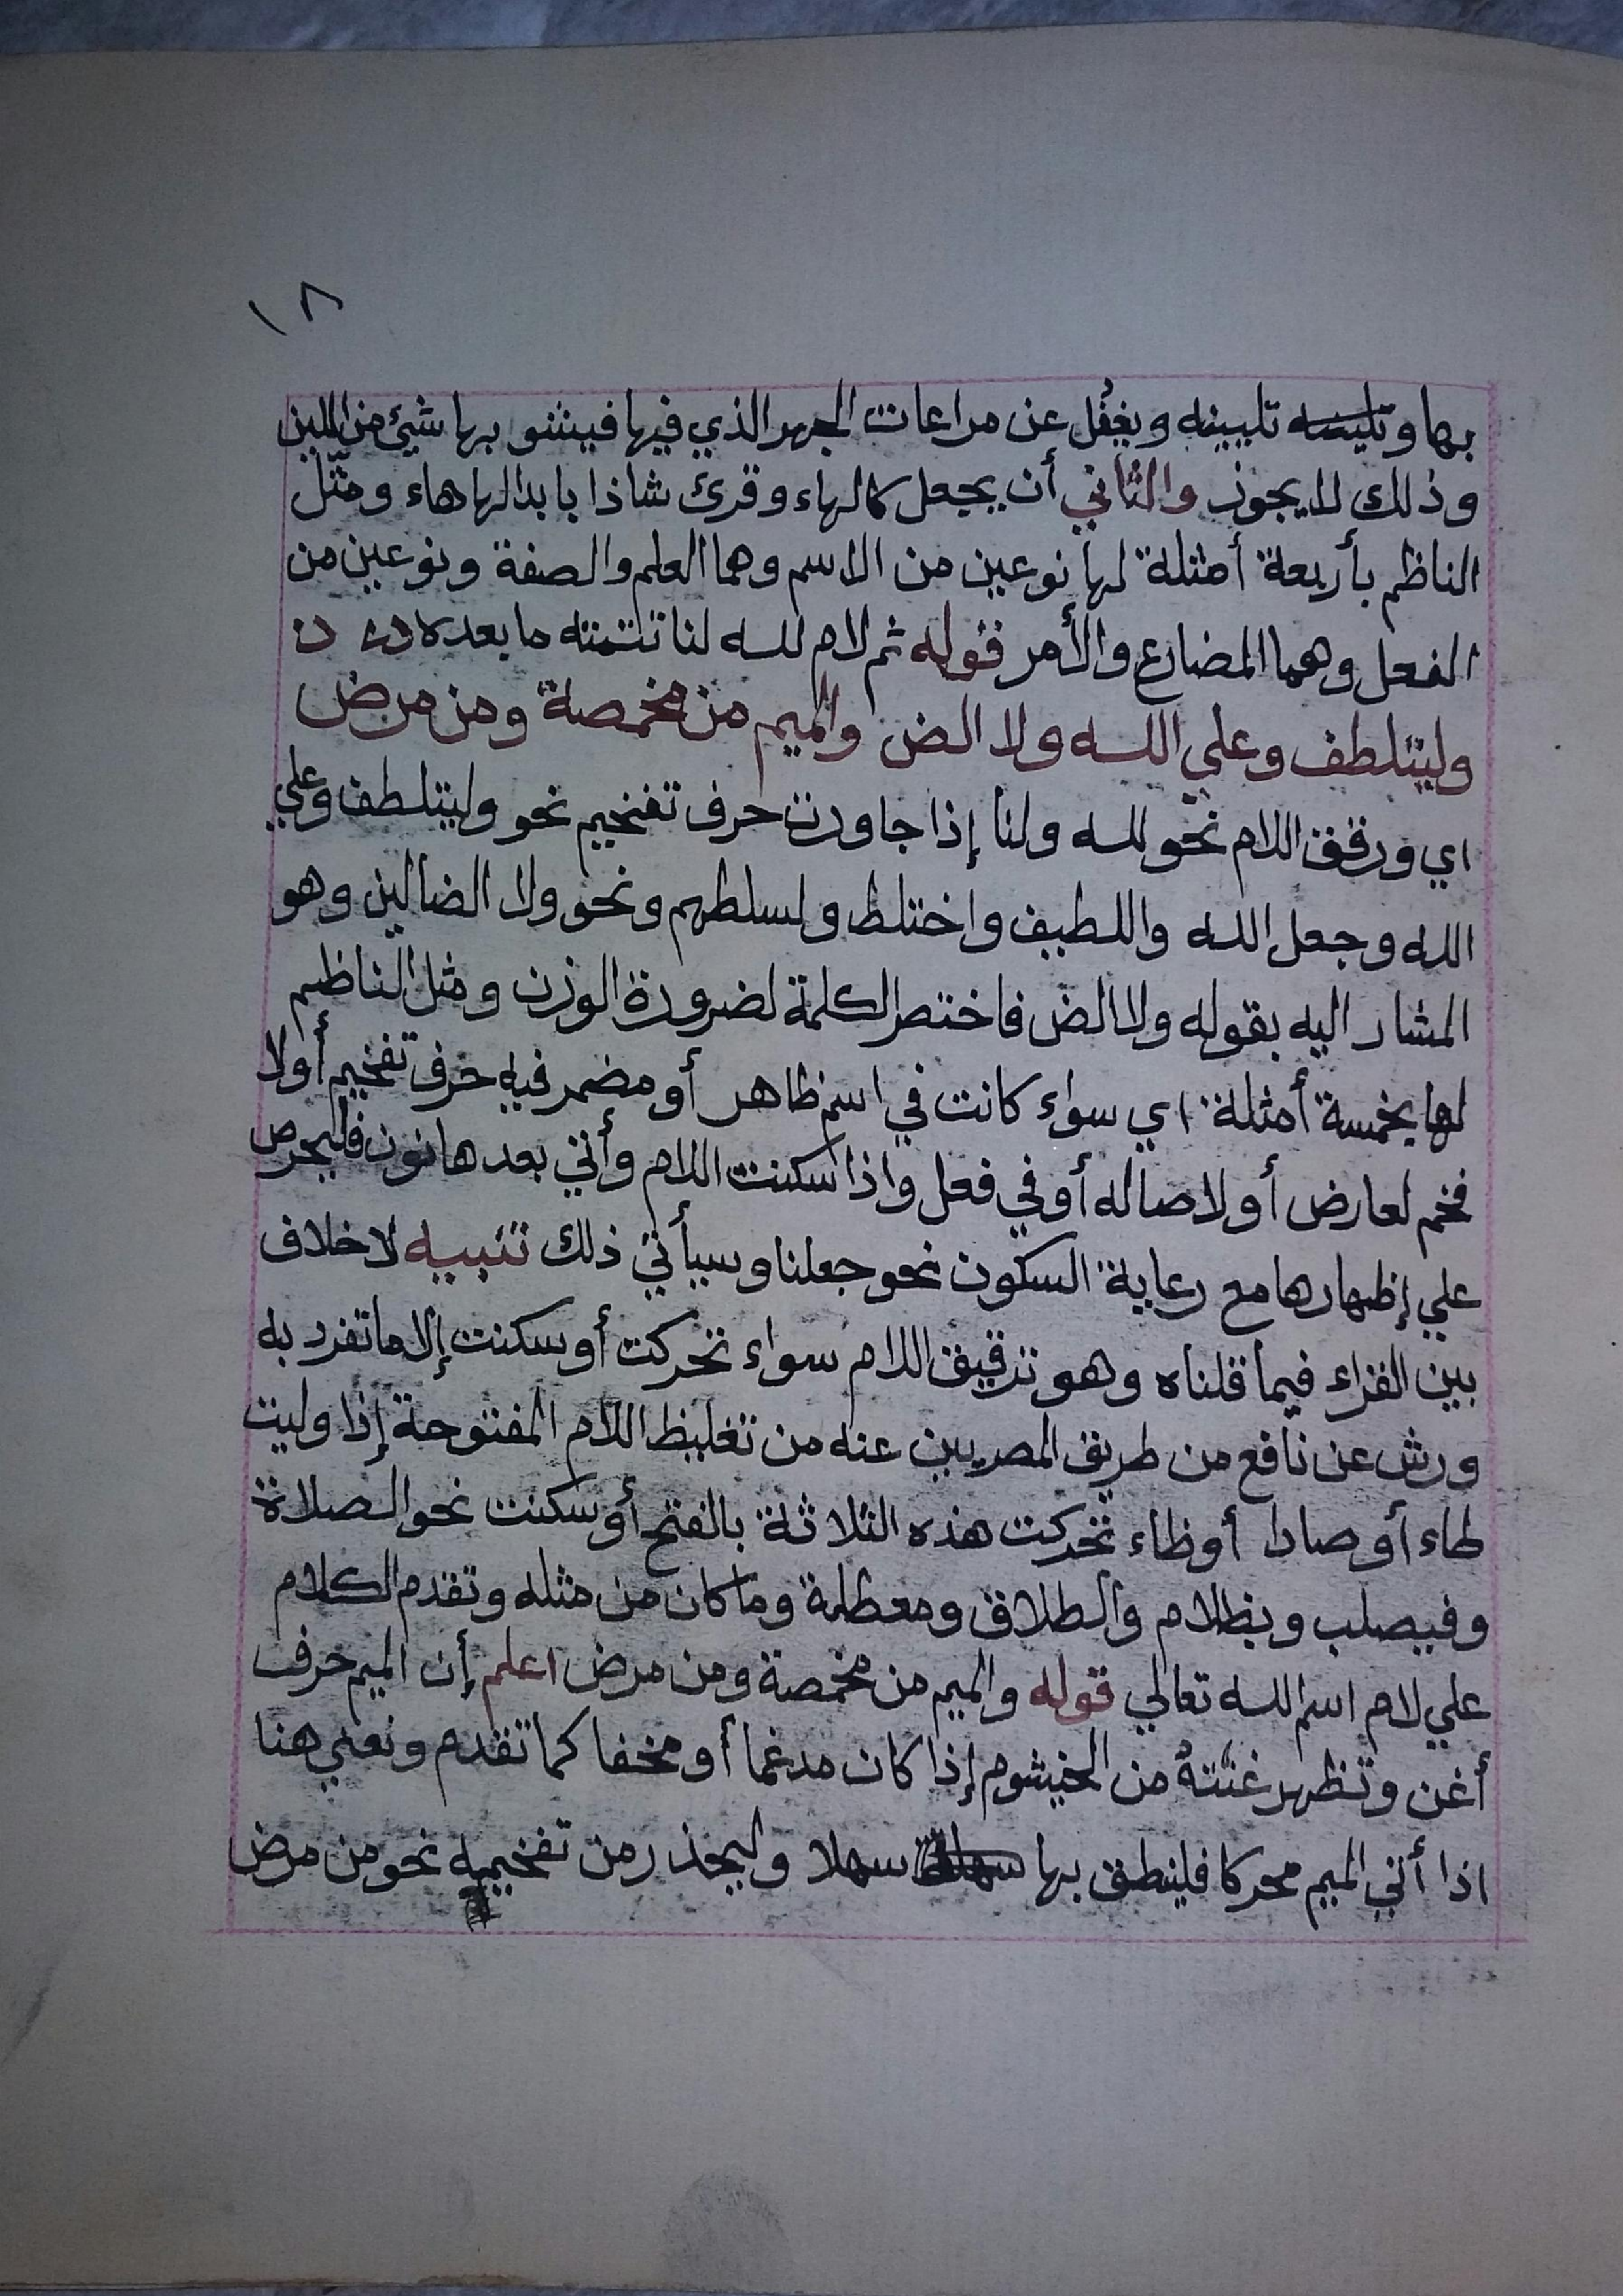 ١٨
بها وتليينه ويغفل عن مراعات الجهر الذي فيها فينشو بها شيئ من اللين
وذلك لا يجوز والثاني أن يجعل كالهاء وقرئ شاذا بابدالها هاء ومثّل
الناظم بأربعة أمثلة لها نوعين من الاسم وهما العلم والصفة ونوعين من
الفعل وهما المضارع والأمر قوله ثم لام لله لنا تتمته ما بعده
وليتلطف وعلي الله ولا الض والميم من مخمصة ومن مرض
اي ورقق اللام نحو لله ولنا إذا جاورت حرف تفخيم نحو وليتلطف وعلي
الله وجعل الله واللطيف واختلط ولسلطهم ونحو ولا الضالين وهو
المشار اليه بقوله ولا الض فاختصر الكلمة لضرورة الوزن ومثل الناظم
لها بخمسة أمثلة اي سواء كانت في اسم ظاهر أو مضمر فيه حرف تفخيم أولا
فخم لعارض أو لاصاله أو في فعل واذا سكنت اللام وأتي بعدها نون فليحرص
علي إظهارها مع رعاية السكون نحو جعلنا وسيأتي ذلك تنبيه لا خلاف
بين القراء فيما قلناه وهو ترقيق اللام سواء تحركت أو سكنت إلا ما تفرد به
ورش عن نافع من طريق المصريين عنه من تغليظ اللام المفتوحة إذا وليت
طاء أو صادا أو ظاء تحركت هذه الثلاثة بالفتح أو سكنت نحو الصلاة
وفيصلب وبظلام والطلاق ومعطلة وما كان من مثله وتقدم الكلام
علي لام اسم الله تعالي قوله والميم من مخمصة ومن مرض اعلم إن الميم حرف
أغن وتظهر غنته من الخيشوم إذا كان مدغما أو مخفا كما تقدم ونعني هنا
اذا أتي الميم محركا فلينطق بها سهلا وليحذر من تفخيمه نحو من مرض